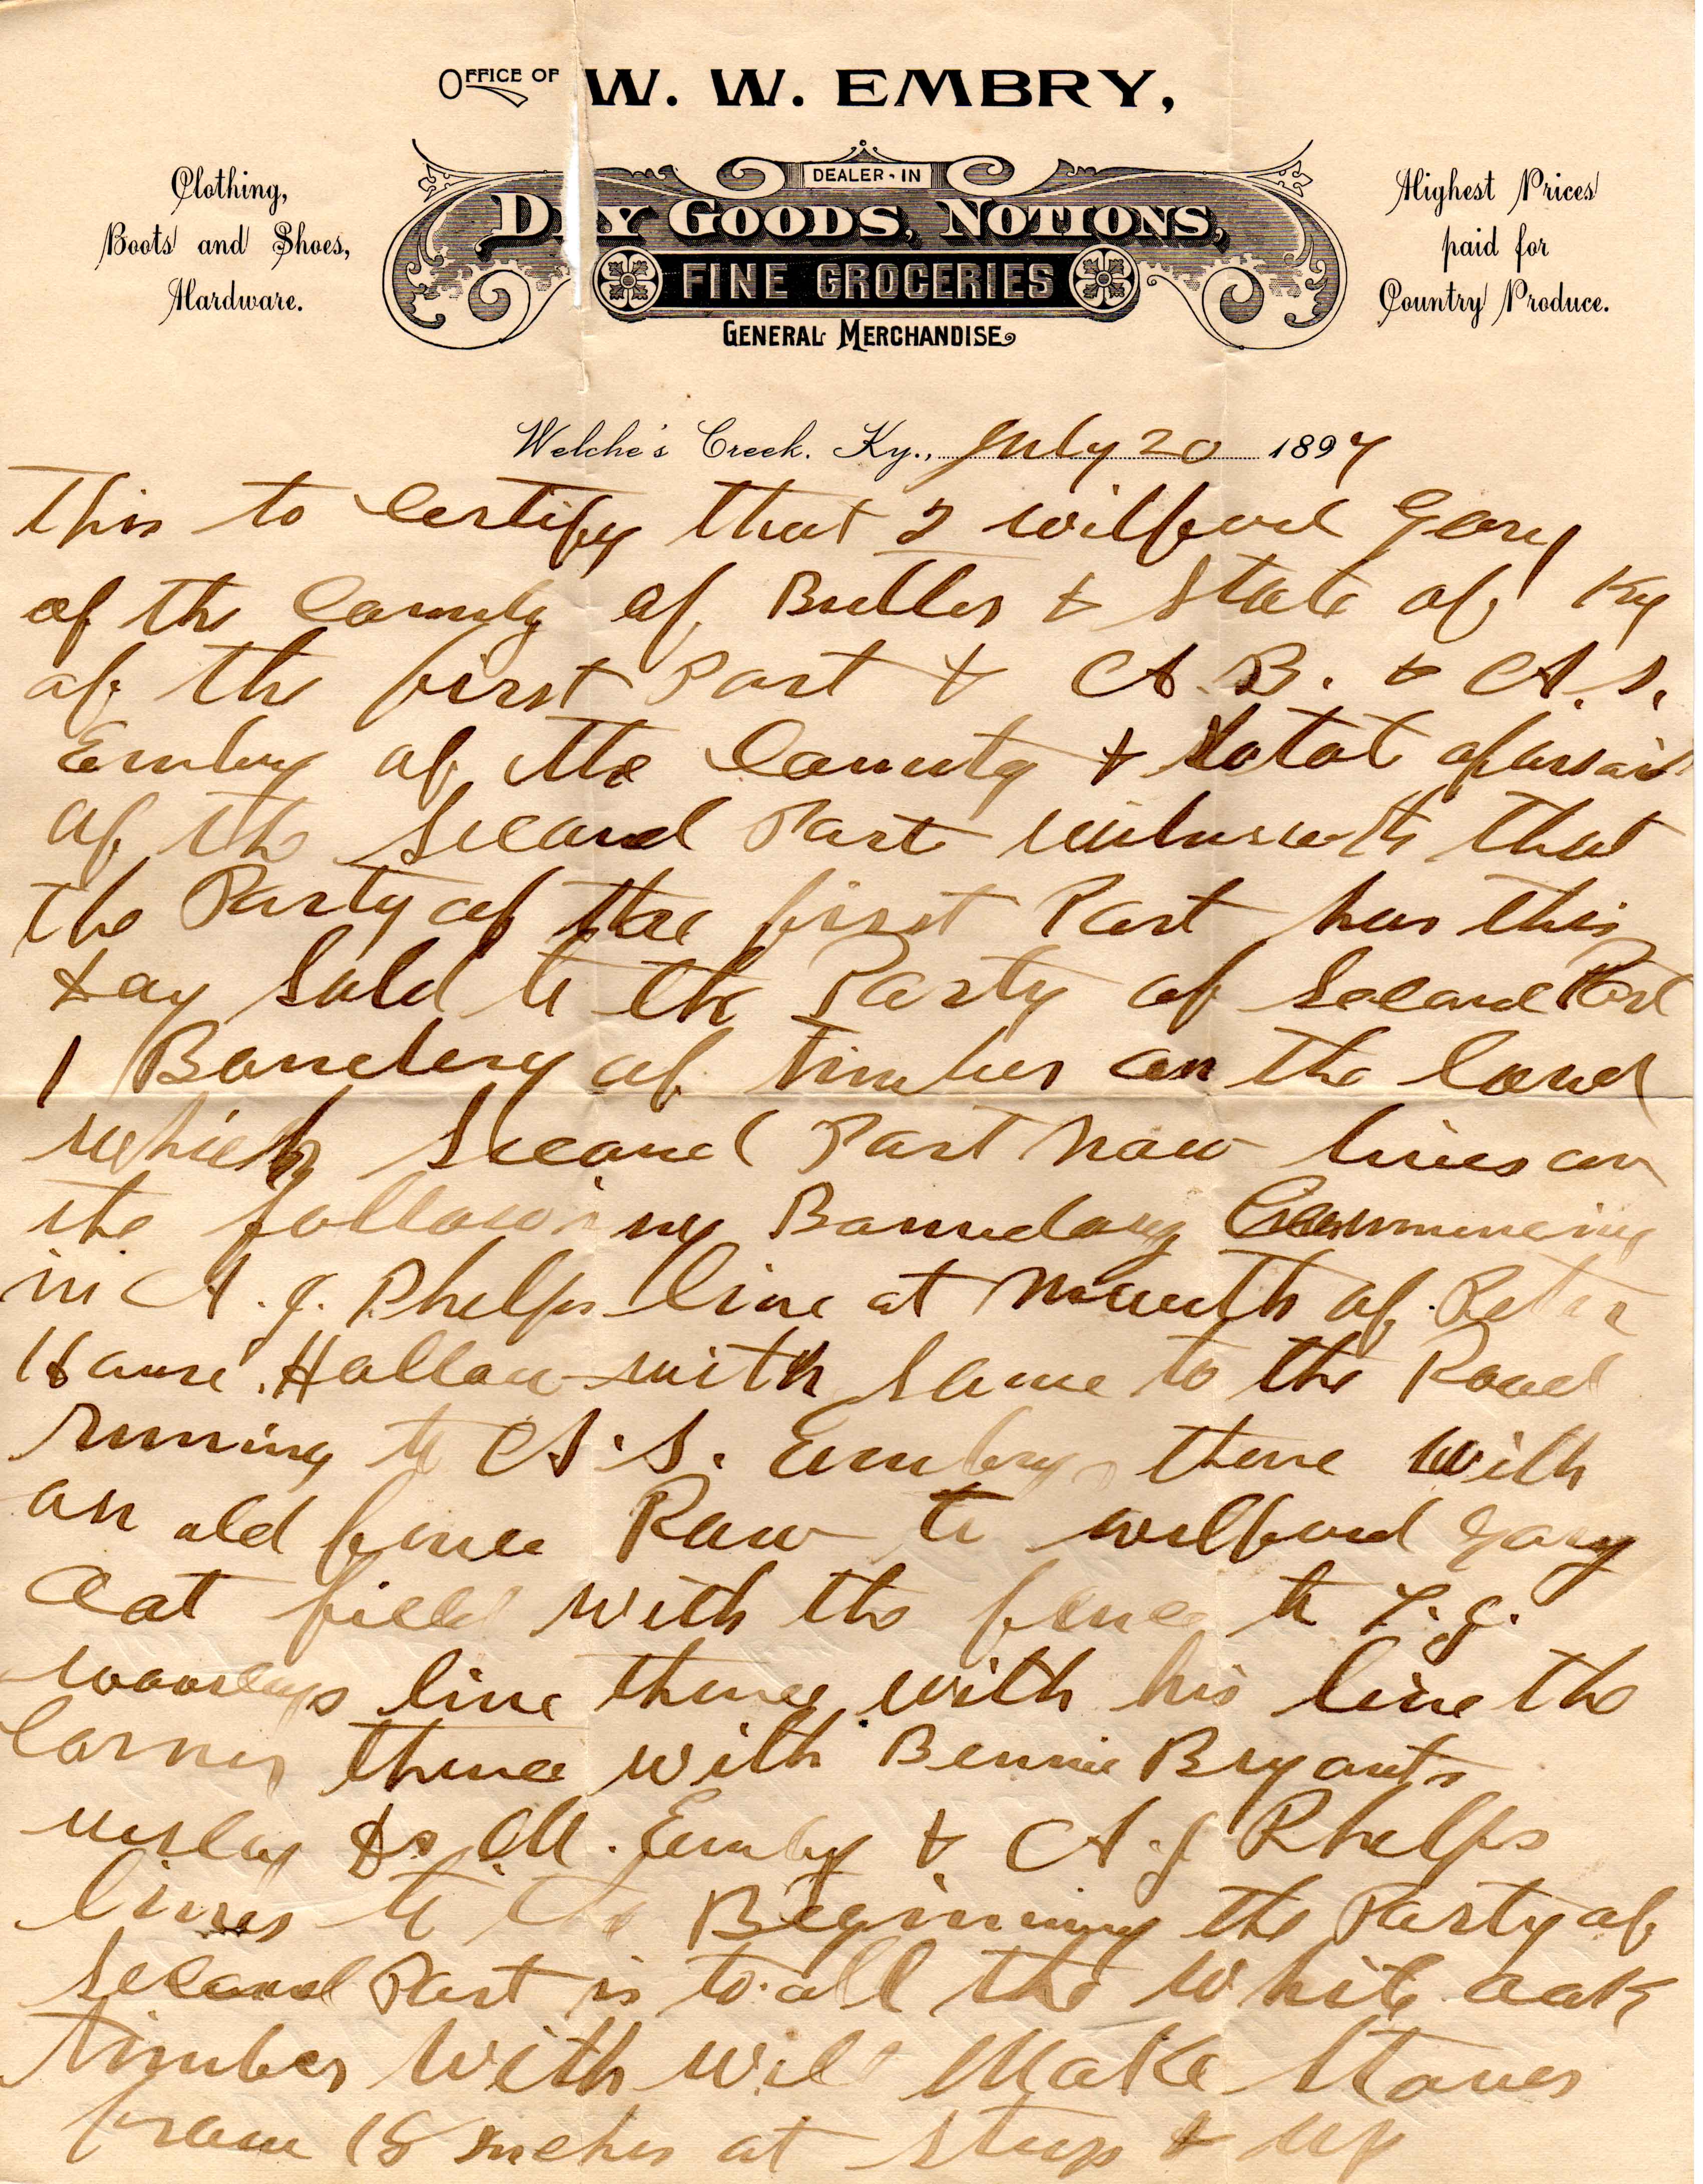 OFFICE OF W. W. EMBRY,
DEALER IN
DRY GOODS, NOTIONS,
FINE GROCERIES
GENERAL MERCHANDISE
Clothing,
Boots and Shoes,
Hardware.
Highest Prices
paid for
Country Produce.
Welche's Creek. Ky., July 20 1897
This to certify that I Wilford Gary
of the County of Butler & State of Ky
of the first Part & A. B. & A. S.
Embry of the County & State aforsaid
of the Second Part witneseth that
the Party of the first Part has this
day Sold to the Party of Second Part
1 Boundery of timber on the land
which Second Part now lives on
the following Boundary Commencing
in A. J. Phelps line at Mouth of
House Hollow with Same to the Road
running to A. S. Embry thence with
an old fence Row to Wilford Gary
Oat field with the fence to T. J.
Woosleys line thence with his line the
Corner thence with Bennie Bryants
M. Embry & A. J Phelps
lines to the Beginning the Party of
Second Part is to all the White oak
timber with will Make Staves
from 18 inches at Stup & up